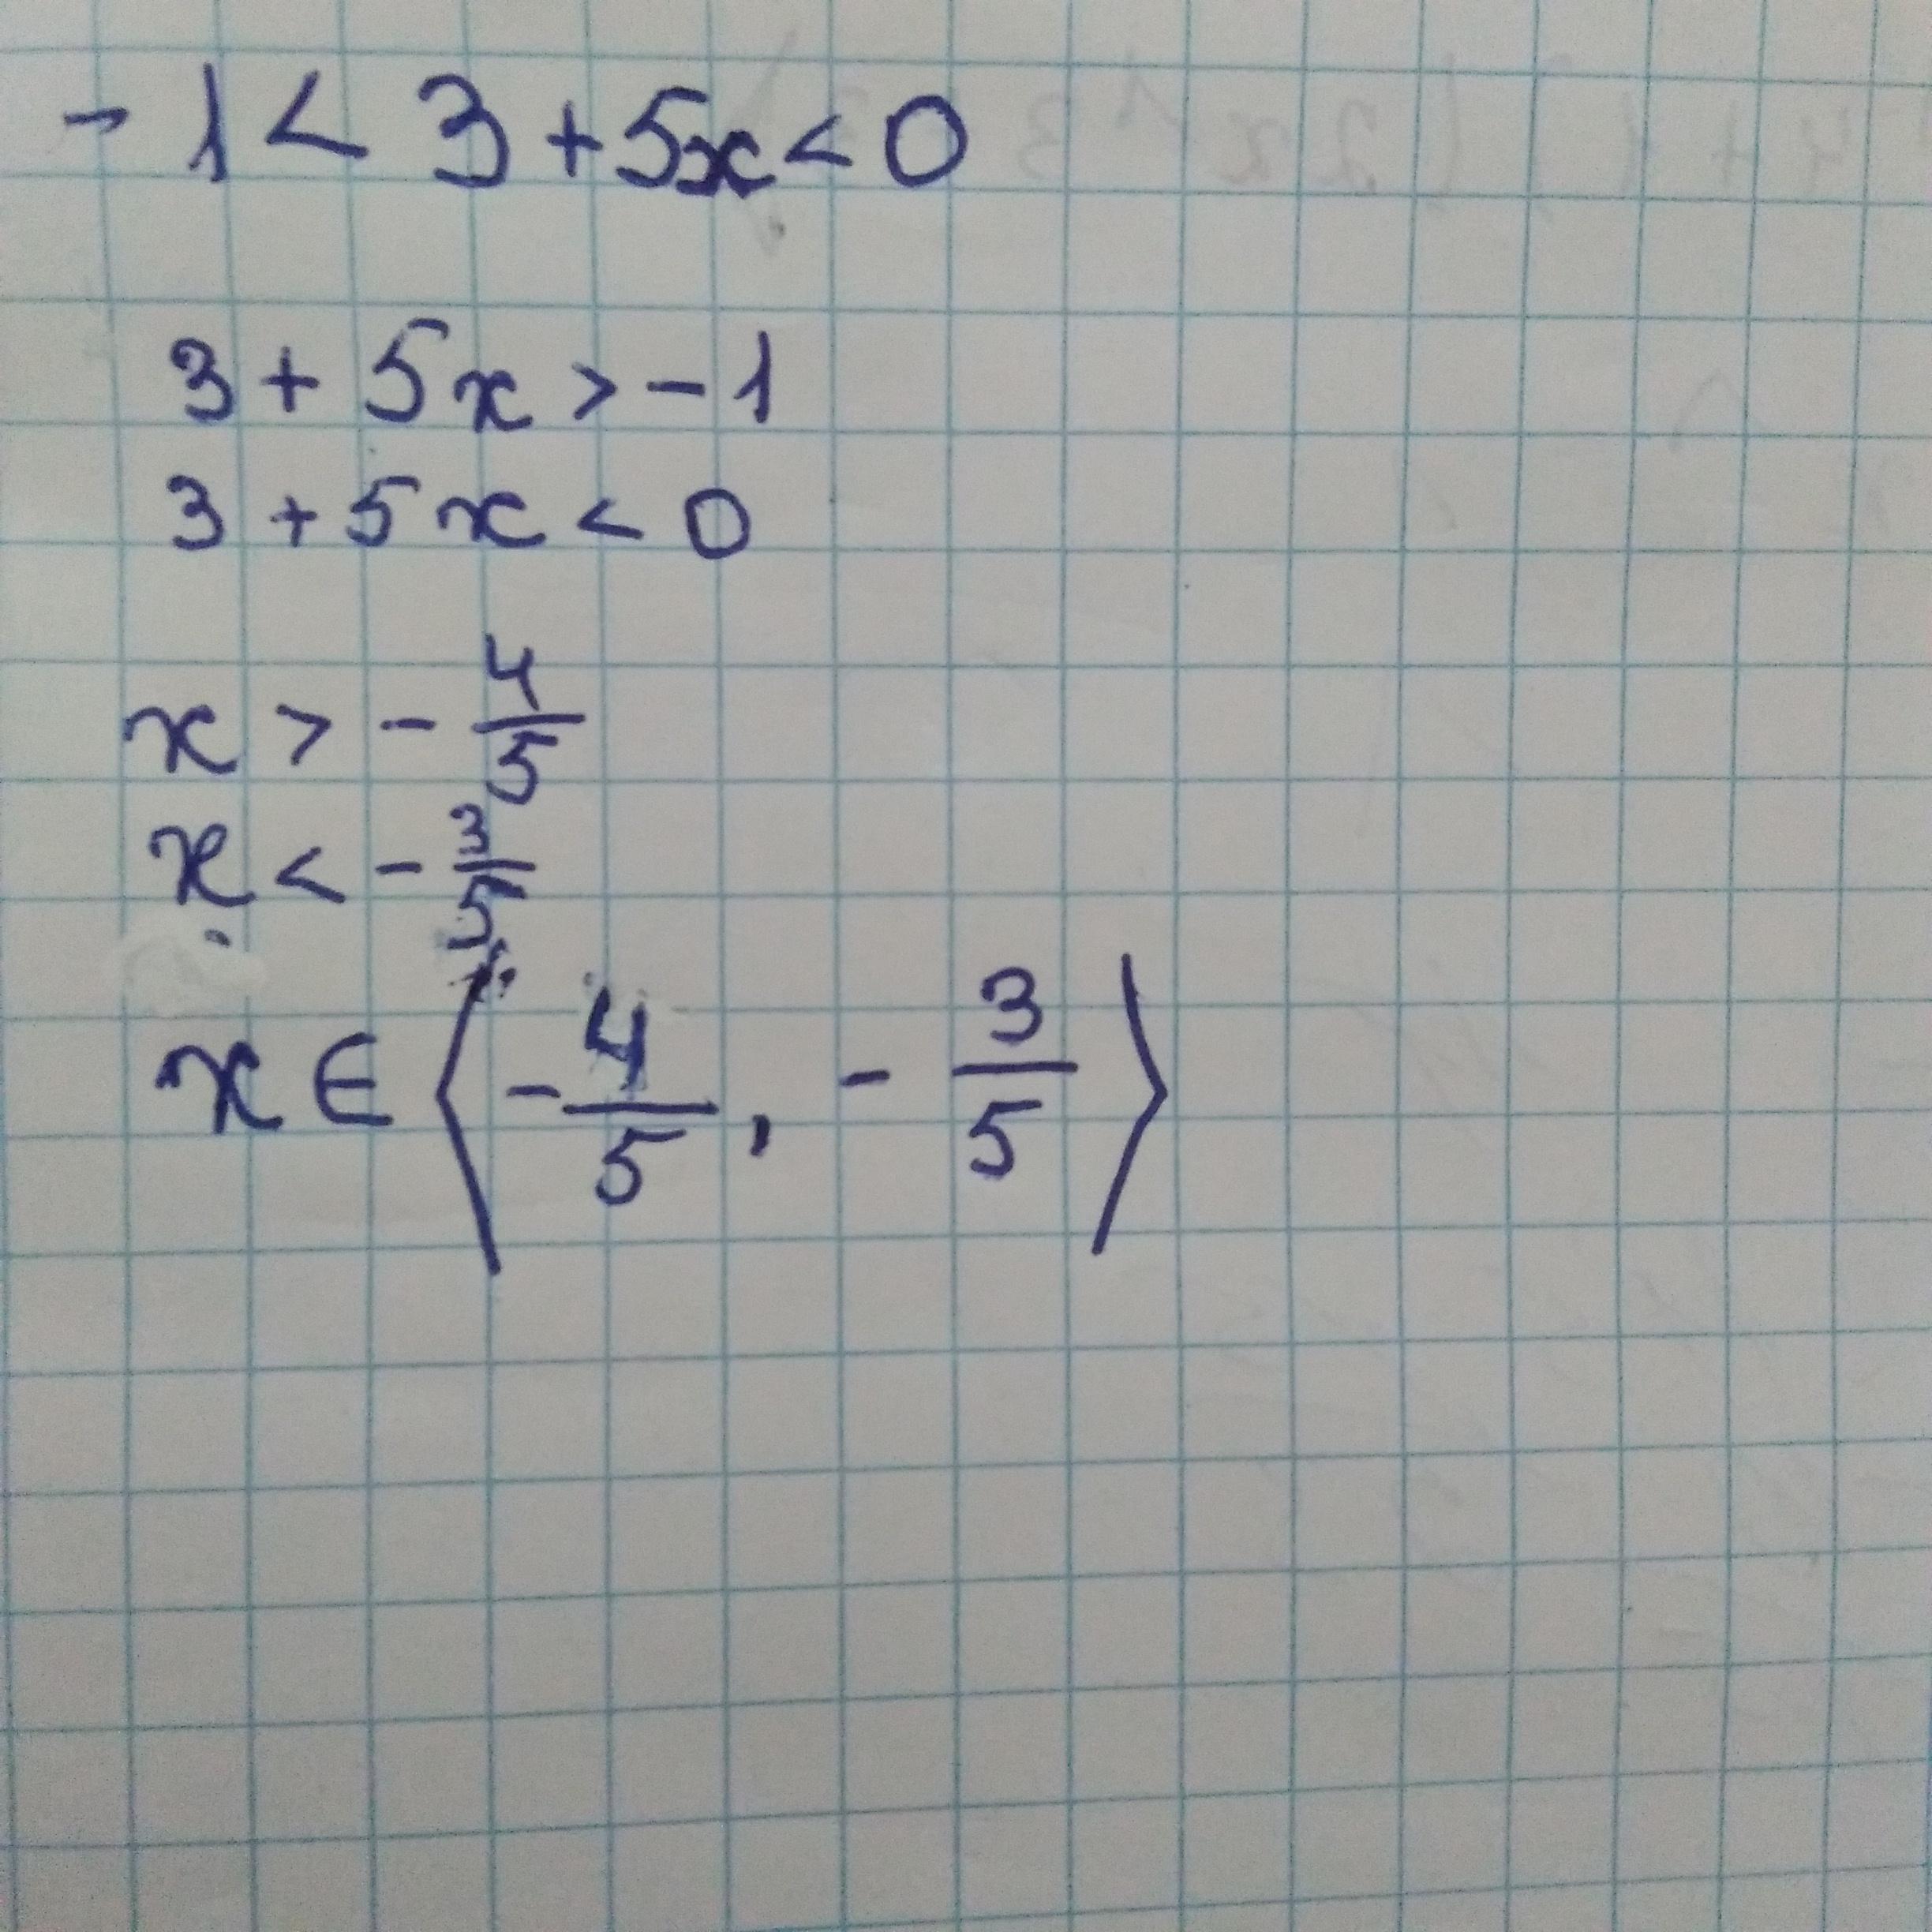 - 1 < 3 + 5x < 0
3 + 5x > - 1
3 + 5x < 0
x > - 4/5
x < - 3/5
x ∈ ⟨ - 4/5 , - 3/5 ⟩